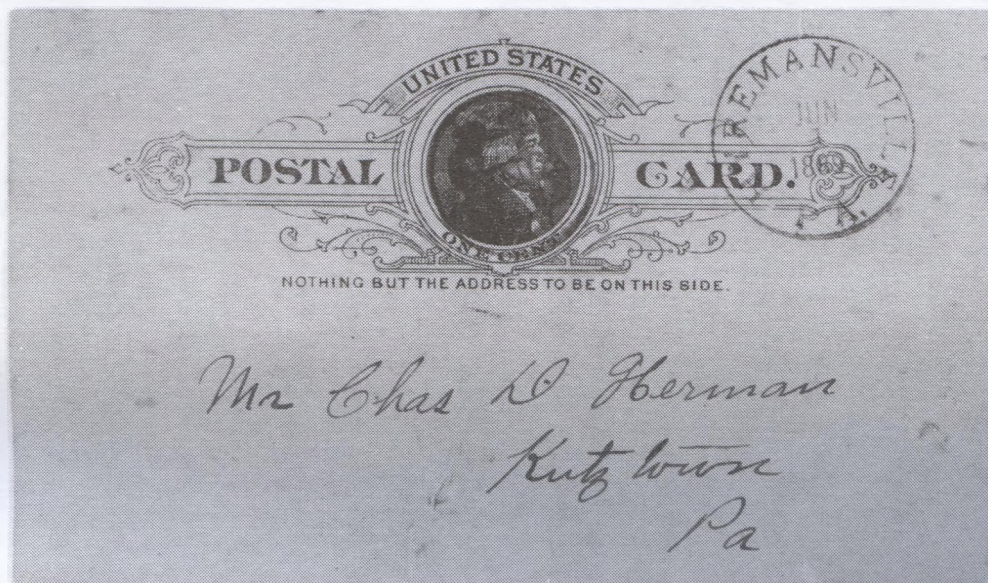 UNITED STATES
POSTAL CARD.
ONE CENT
NOTHING BUT THE ADDRESS TO BE ON THIS SIDE.
JUN
PA.
Mr Chas D Herman
Kutztown
Pa